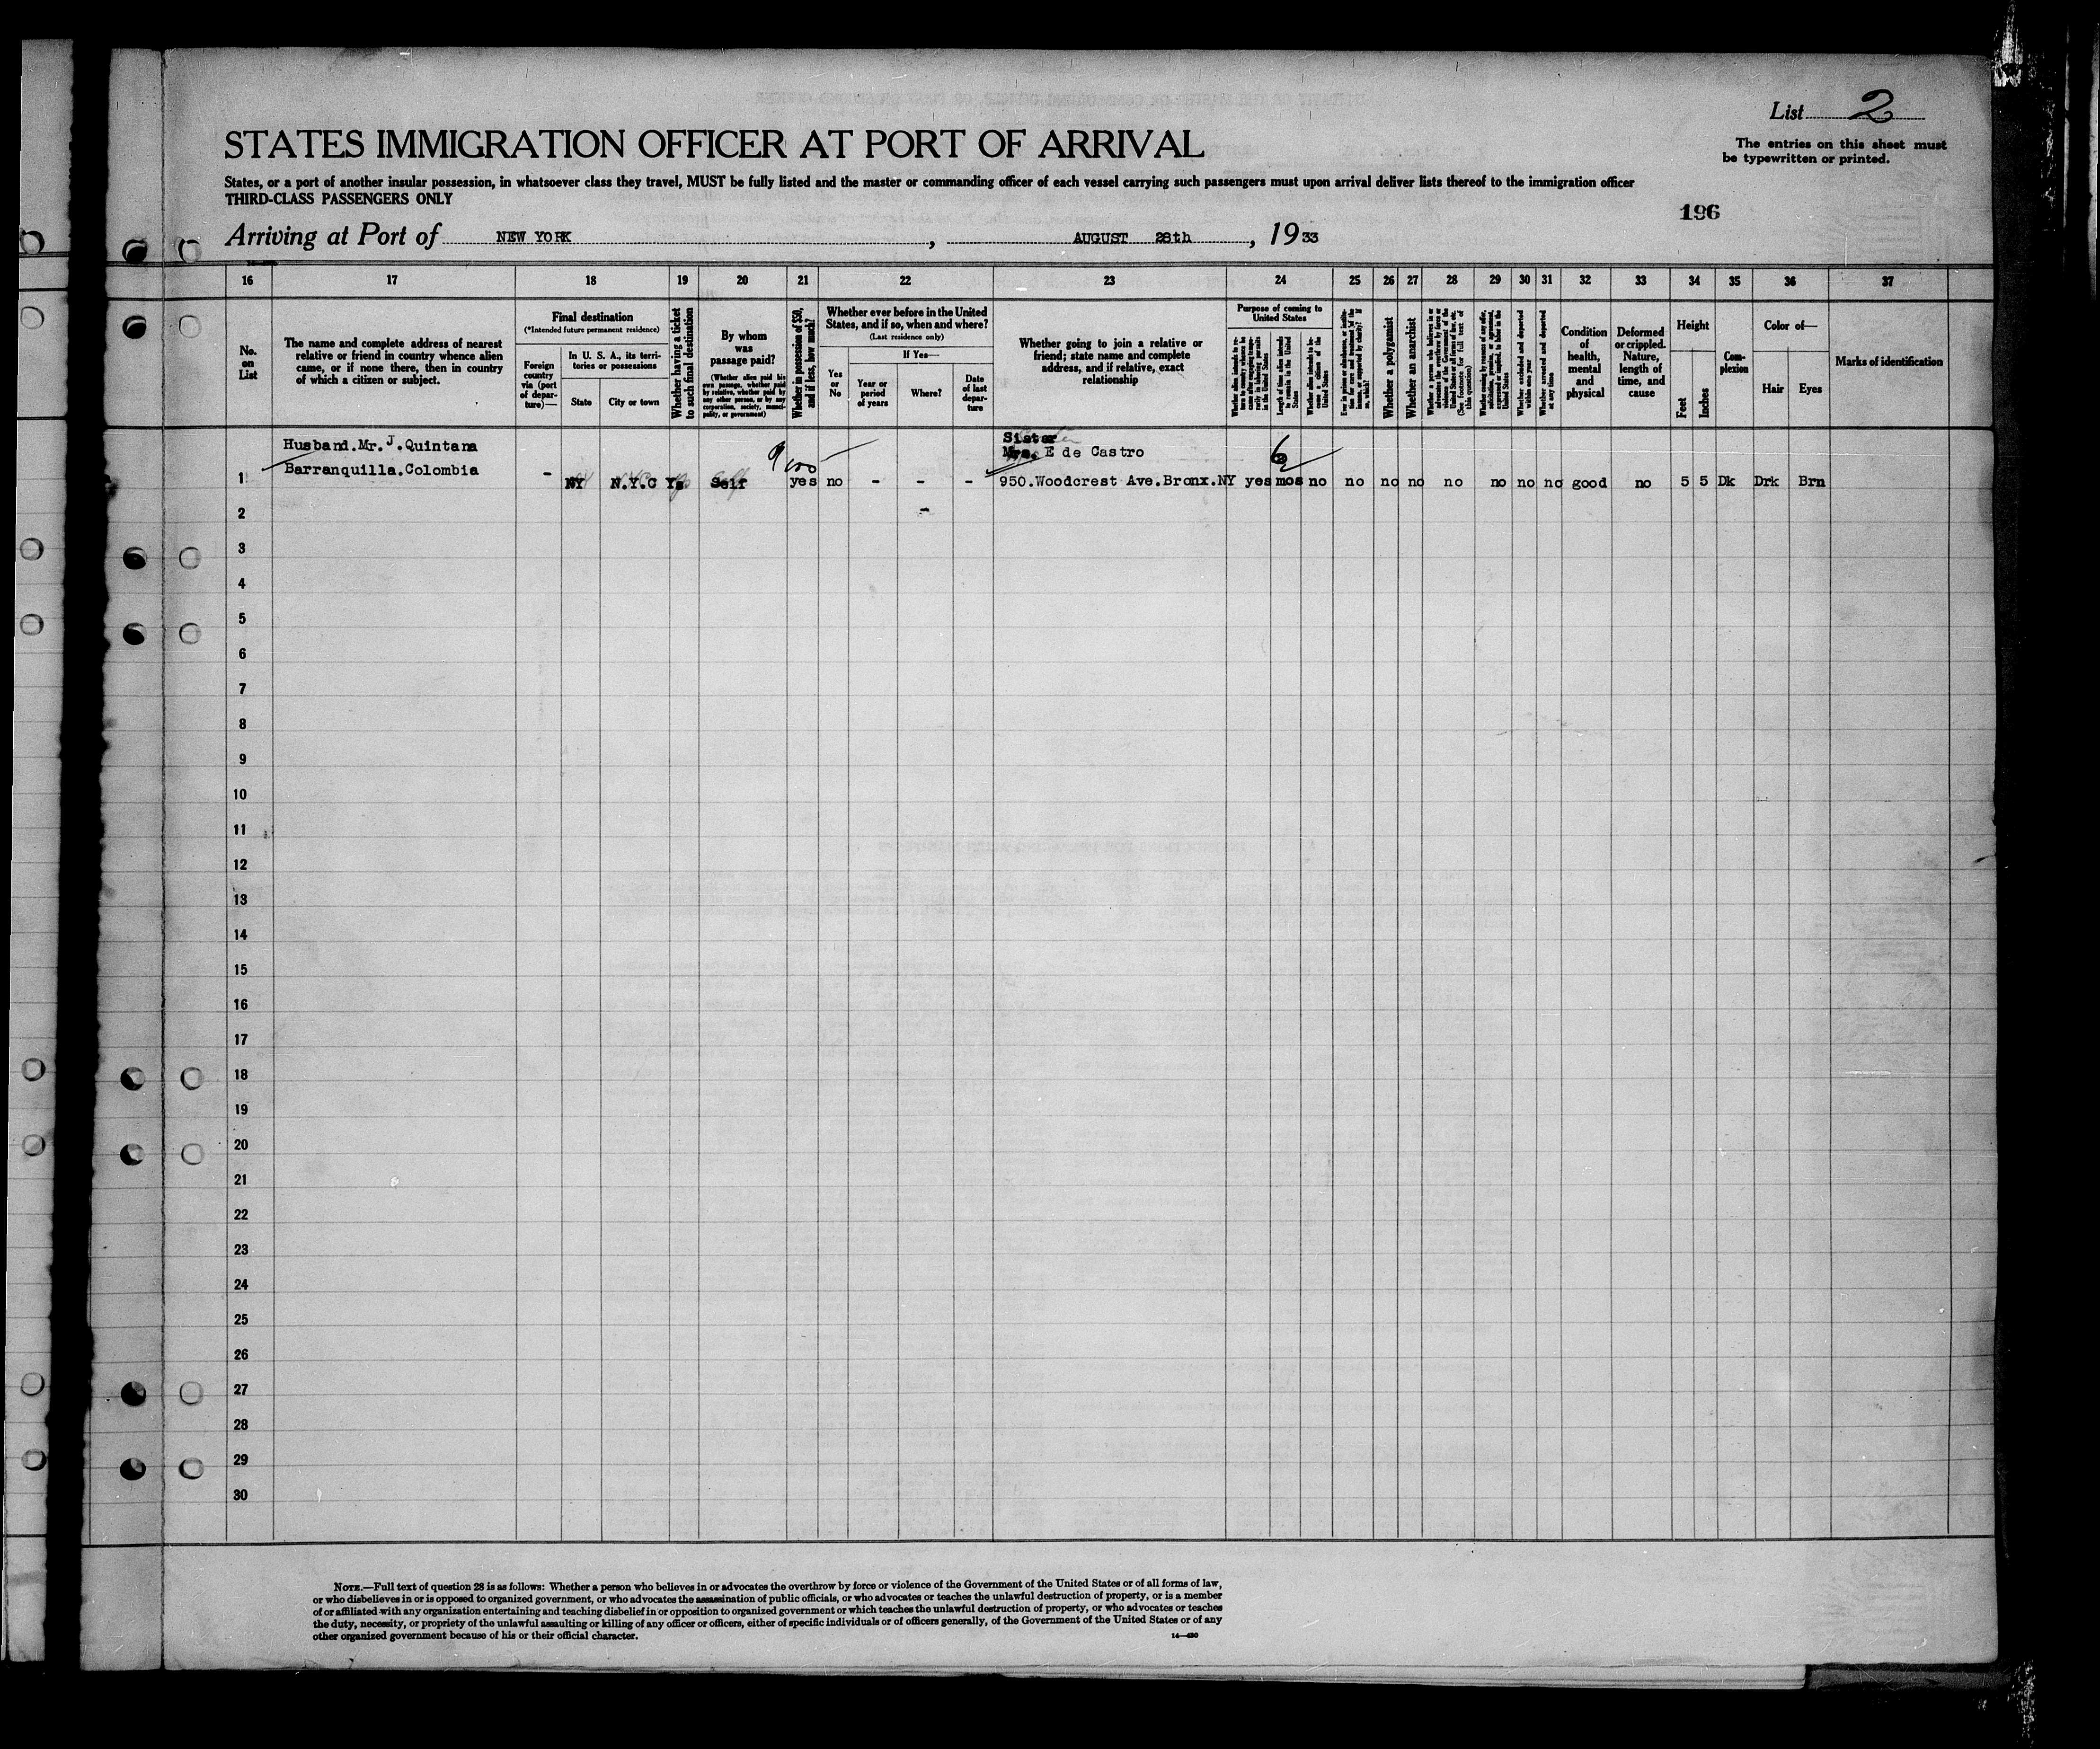 List 2
The entries on this sheet must
be typewritten or printed.
STATES IMMIGRATION OFFICER AT PORT OF ARRIVAL
States, or a port of another insular possession, in whatsoever class they travel, MUST be fully listed and the master or commanding officer of each vessel carrying such passengers must upon arrival deliver lists thereof to the immigration officer
THIRD-CLASS PASSENGERS ONLY
196
Arriving at Port of NEW YORK, AUGUST 28th, 1933
16 17 18 19 20 21 22 23 24 25 26 27 28 29 30 31 32 33 34 35 36 37
No.
on
List
The name and complete address of nearest
relative or friend in country whence alien
came, or if none there, then in country
of which a citizen or subject.
Final destination
(*Intended future permanent residence)
Foreign
country
via (port
of depar-
ture)—
In U. S. A., its terri-
tories or possessions
State
City or town
Whether having a ticket
to such final destination
By whom
was
passage paid?
(Whether alien paid his
own passage, whether paid
by relative, whether paid by
any other person, or by any
corporation, society, munici-
pality, or government)
Whether in possession of $50,
and if less, how much?
Whether ever before in the United
States, and if so, when and where?
(Last residence only)
Yes
or
No
If Yes—
Year or
period
of years
Where?
Date
of last
depar-
ture
Whether going to join a relative or
friend; state name and complete
address, and if relative, exact
relationship
Purpose of coming to
United States
Whether alien intends to re-
turn to country whence he
came after engaging tempo-
rarily in laboring pursuits
in the United States
Length of time alien intends
to remain in the United
States
Whether alien intends to be-
come a citizen of the
United States
Whether a polygamist
Whether an anarchist
Whether excluded and deported
within one year
Whether arrested and deported
at any time
Condition
of
health,
mental
and
physical
Deformed
or crippled.
Nature,
length of
time, and
cause
Height
Feet
Inches
Com-
plexion
Color of—
Hair
Eyes
Marks of identification
Husband.Mr.J.Quintana
Barranquilla.Colombia
Sister
Mrs. E de Castro
6
1 - NY N.Y.C Ys Self yes no - - - 950.Woodcrest Ave.Bronx.NY yes mos no no no no no no no no good no 5 5 Dk Drk Brn
2 -
3
4
5
6
7
8
9
10
11
12
13
14
15
16
17
18
19
20
21
22
23
24
25
26
27
28
29
30
NOTE.—Full text of question 28 is as follows: Whether a person who believes in or advocates the overthrow by force or violence of the Government of the United States or of all forms of law,
or who disbelieves in or is opposed to organized government, or who advocates the assassination of public officials, or who advocates or teaches the unlawful destruction of property, or is a member
of or affiliated with any organization entertaining and teaching disbelief in or opposition to organized government or which teaches the unlawful destruction of property, or who advocates or teaches
the duty, necessity, or propriety of the unlawful assaulting or killing of any officer or officers, either of specific individuals or of officers generally, of the Government of the United States or of any
other organized government because of his or their official character.